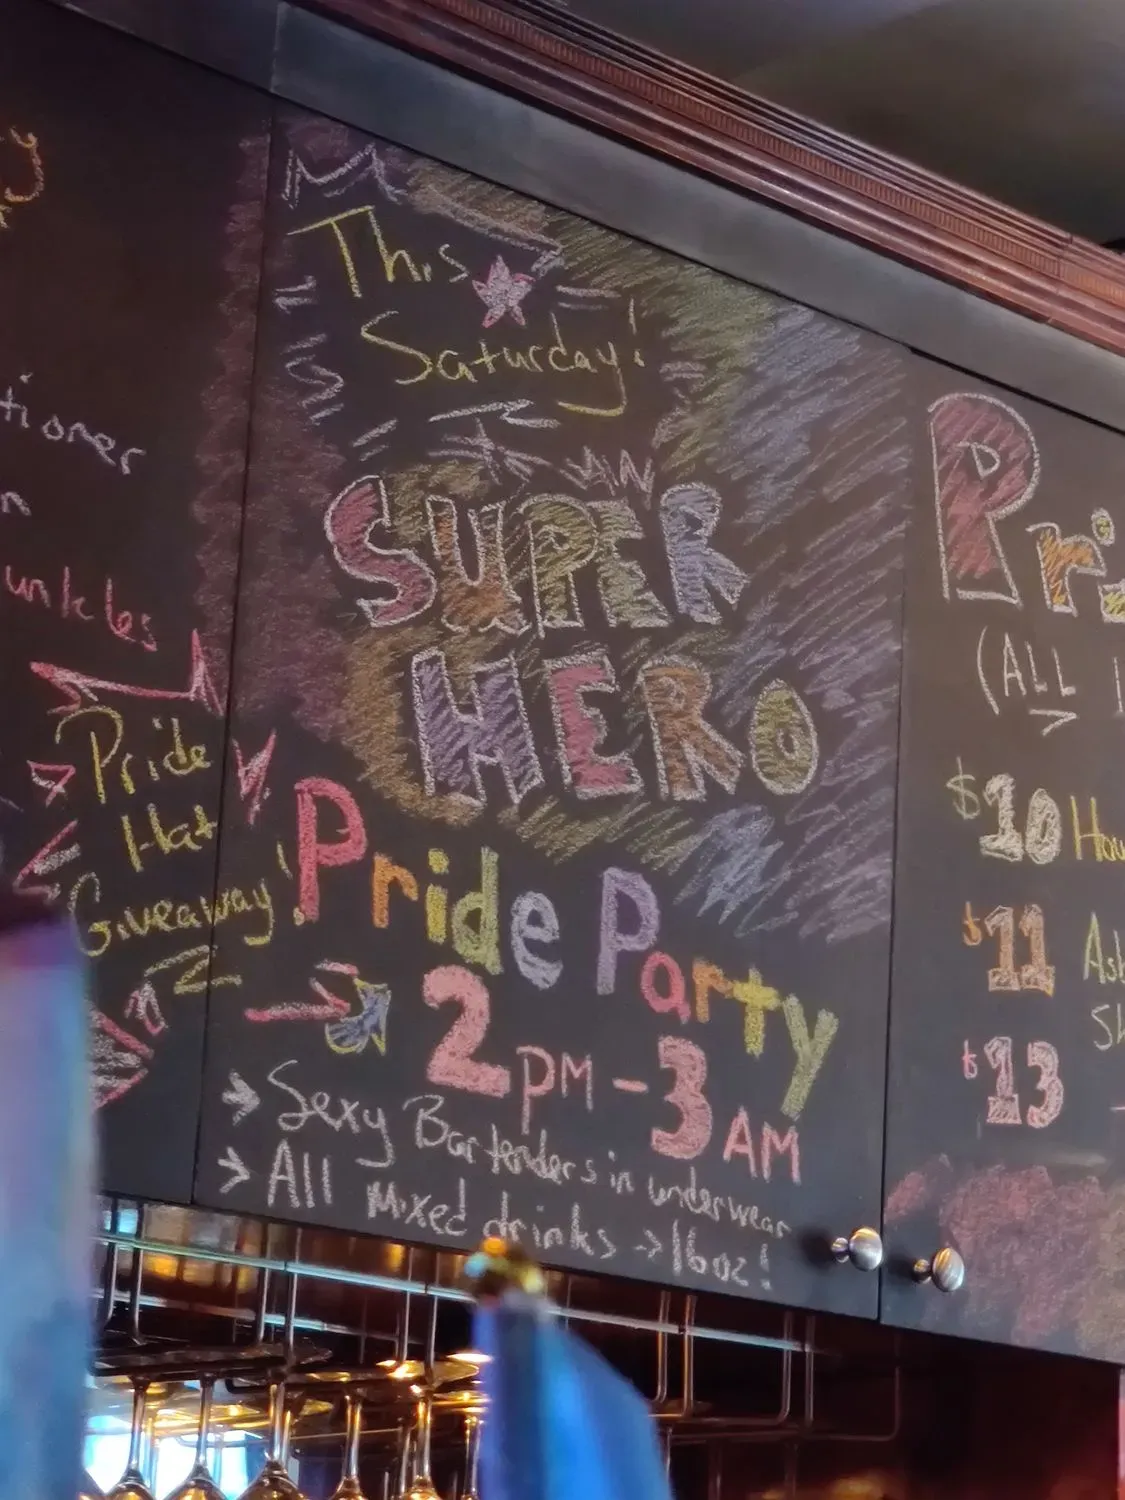 tioner
unkles
Pride
Hat
Giveaway!
This
Saturday!
AN
SUPER
HERO
Pride Party
2PM-3AM
→ Sexy Bartenders in underwear
→ All Mixed drinks → 16oz!
(ALL
$10
$11
$13